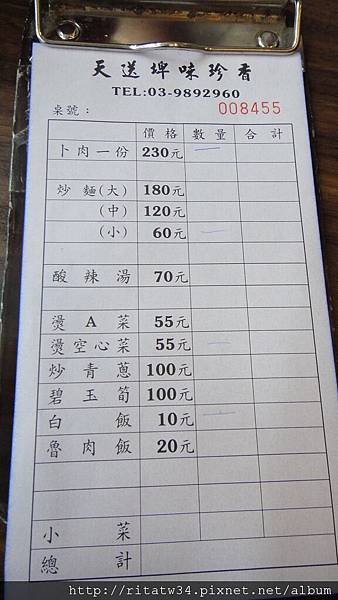 天送埤味珍香
TEL:03-9892960
桌號： 008455
價格 數量 合計
卜肉一份 230元 一
炒麵(大) 180元
(中) 120元
(小) 60元 一
酸辣湯 70元
燙A菜 55元
燙空心菜 55元 一
炒青蔥 100元
碧玉筍 100元
白飯 10元 一
魯肉飯 20元
小菜
總計
http://ritatw34.pixnet.net/album